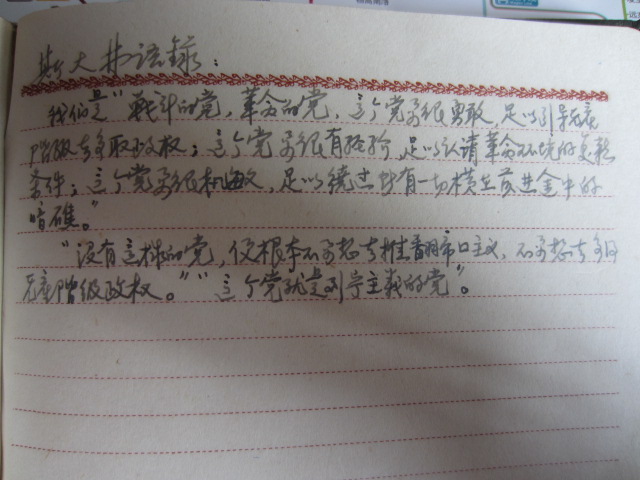 斯大林语录：
我们是"战斗的党，革命的党，这个党要很勇敢，足以引导无产
阶级去夺取政权；这个党要很有经验，足以认清革命环境的复杂
条件；这个党要很机敏，足以绕过所有一切横在前进途中的
暗礁。"
"没有这样的党，便根本不要想去推翻帝国主义，不要想去争得
无产阶级政权。""这个党就是列宁主义的党"。